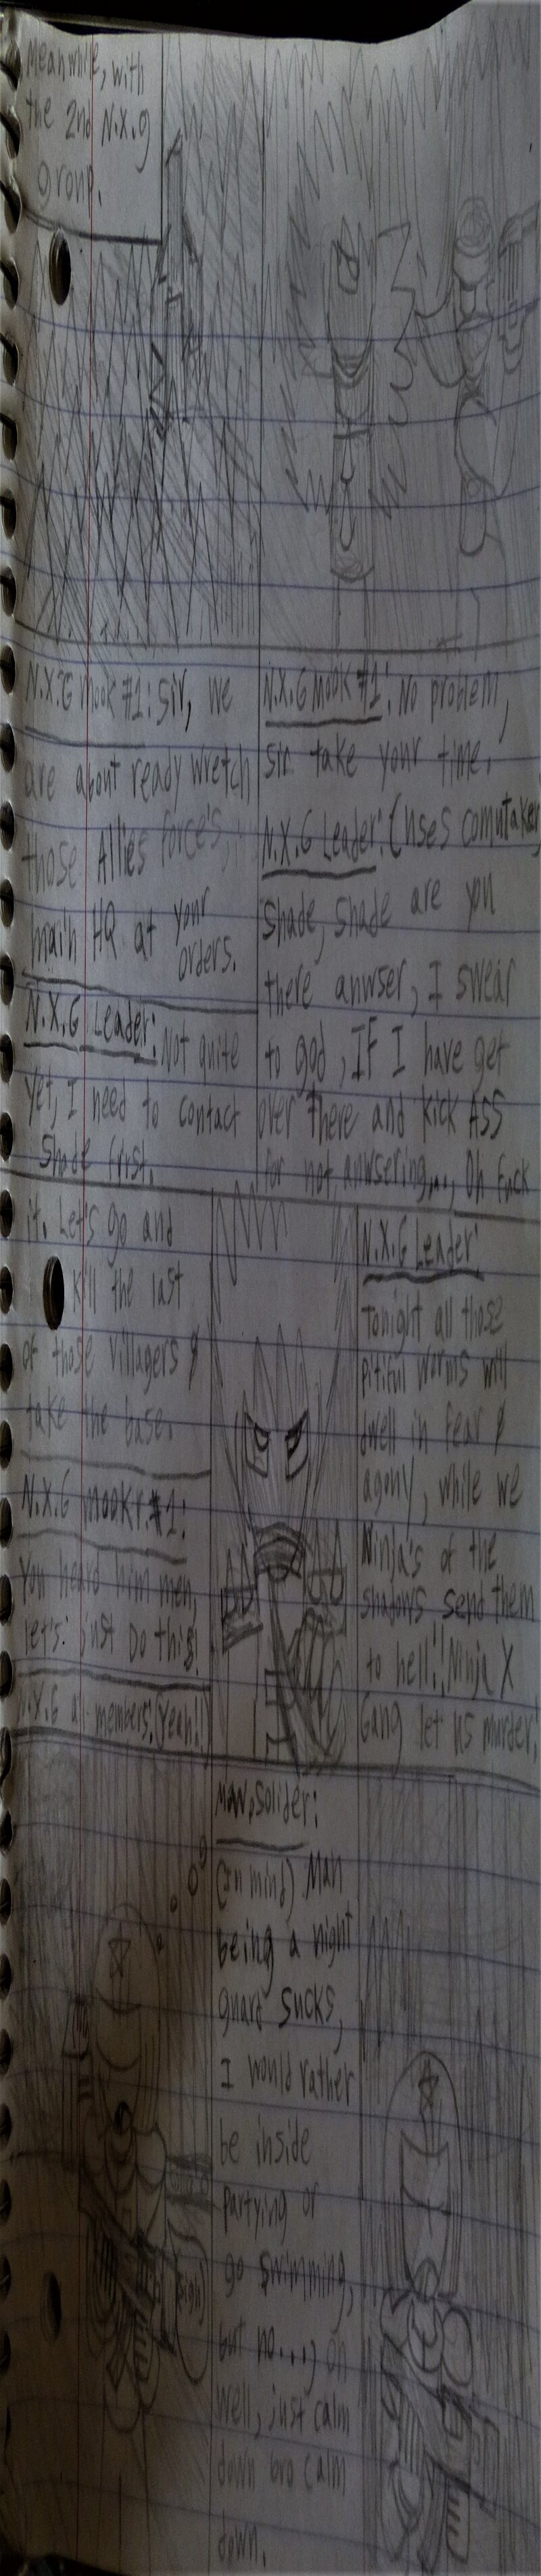 Meanwhile, with
the 2nd N.X.g
Group.
N.X.G Mook #1: Sir, we
are about ready wretch
those Allies force's
main HQ at your
orders.
N.X.G Leader: Not quite
yet, I need to contact
Shade first.
N.X.G Mook #1: No problem,
sir take your time.
N.X.G Leader: (uses comutaker
Shade, Shade are you
there anwser, I swear
to god, IF I have get
over there and kick ASS
for not anwsering..., Oh Fuck
it. Let's go and
kill the last
of those villagers &
take the base.
N.X.G Mook #1:
You heard him men,
let's just Do this!
N.X.G all members: (Yeah!!)
N.X.G Leader:
Tonight all those
pitiful worms will
dwell in fear &
agony, while we
Ninja's of the
shadows send them
to hell! Ninja X
Gang let us murder.
Solider:
(in mind) Man
being a night
guard sucks,
I would rather
be inside
partying or
go swimming,
but no..., oh
well, just calm
down bro calm
down.
(sigh)